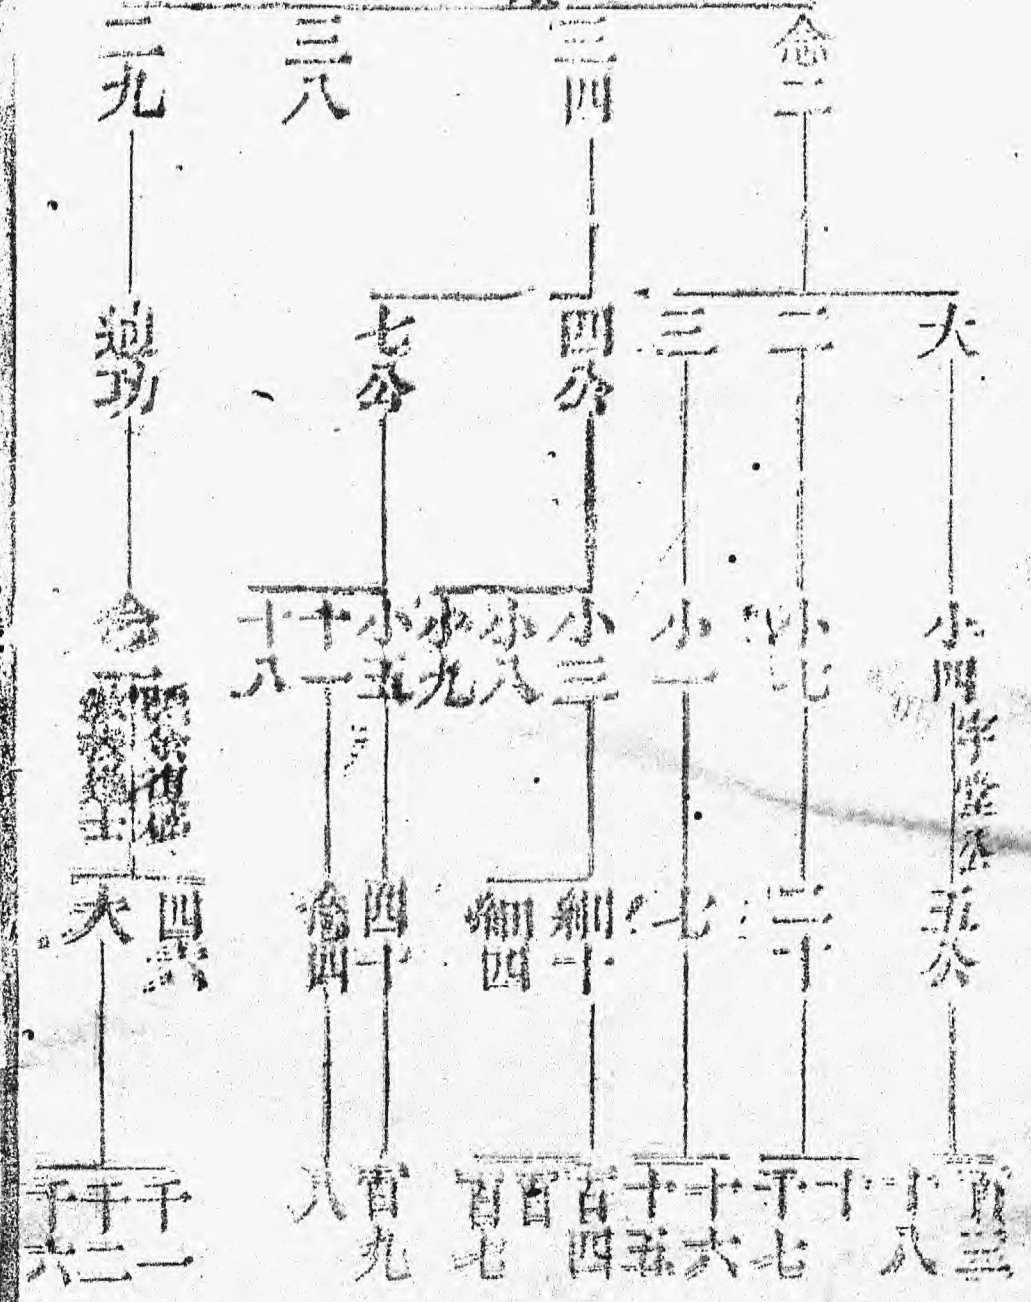 念二
三四
三八
三九
大
二
三
四公
七公
廸功
小四
字堂公
小七
小一
小三
小八
小九
小五
十一
十八
念一
五八
二十
七
細十
細四
四十
念四
四六
大
百三
十八
十
千七
十六
十五
百四
百
百七
百九
八
千一
千二
千六